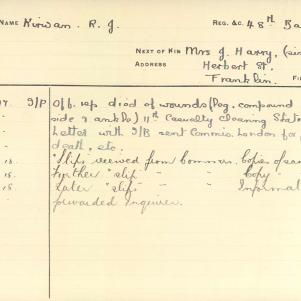 NAME Kirwan. R. J. REG. &C. 48th Ba
NEXT OF KIN Mrs J. Harry, (sis
ADDRESS Herbert St.
Franklin. FI
17. I/P Off. rep died of wounds (leg, compound
side & ankle) 11th Casualty Clearing Stat
Letter with I/B sent Commis. London for
death, etc.
18. "Slips" received from Comm. Copies of same
18. Further "slip" " " Copy "
18. Later "slip" " " Informat
forwarded inquirer.